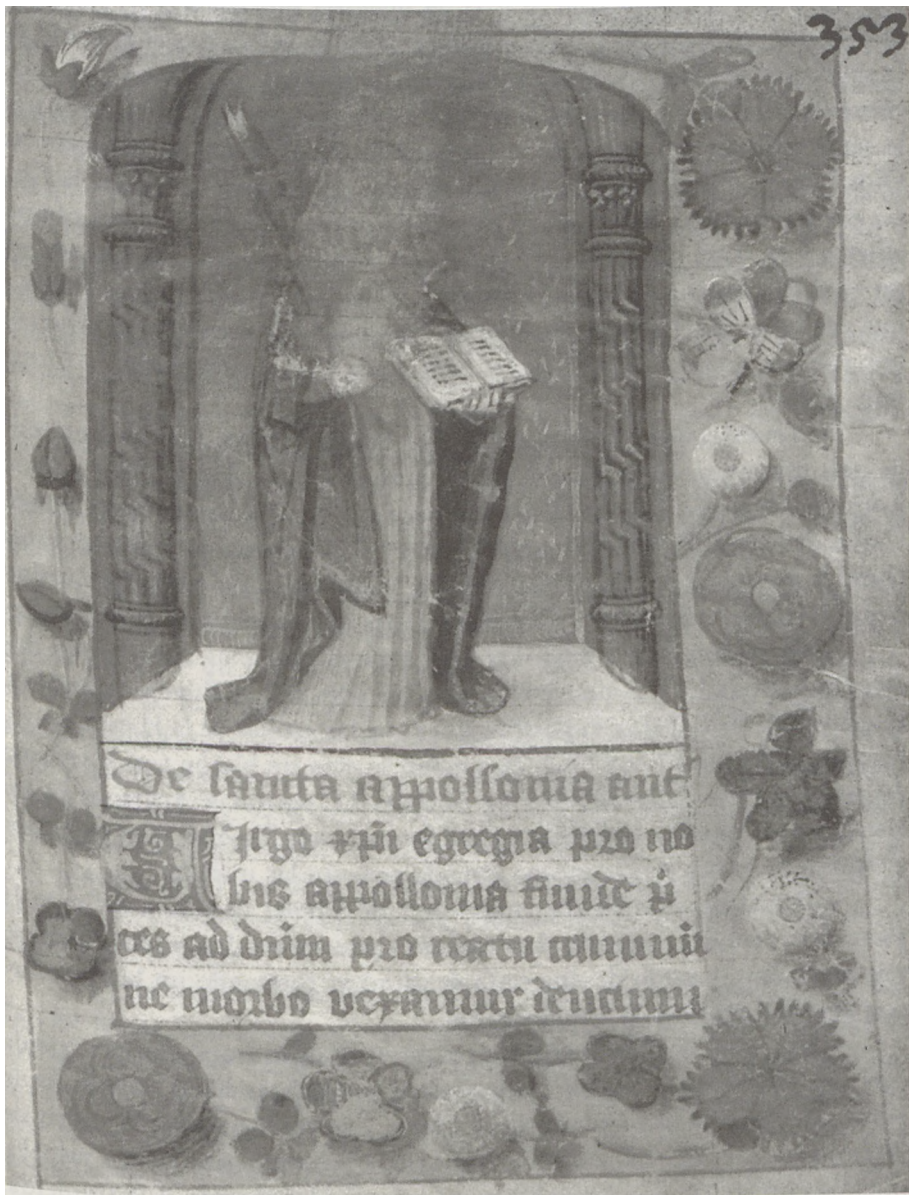 353
De sancta appollonia ant
Virgo xpi egregia pro no
bis appollonia funde p
ces ad dnm pro
ne morbo vexamur dentium